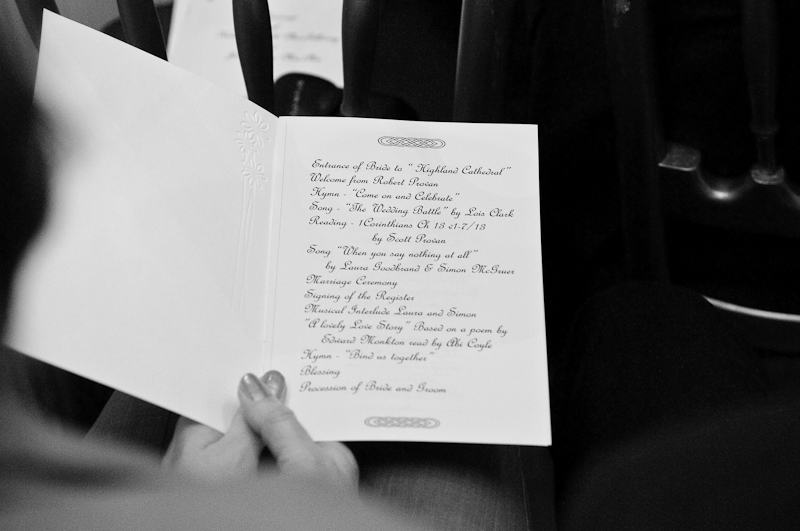 Entrance of Bride to " Highland Cathedral"
Welcome from Robert Provan
Hymn - "Come on and Celebrate"
Song - "The Wedding Battle" by Lois Clark
Reading - 1Corinthians Ch 13 v1-7/13
by Scott Provan
Song "When you say nothing at all"
by Laura Goodbrand & Simon McGruer
Marriage Ceremony
Signing of the Register
Musical Interlude Laura and Simon
"A lovely Love Story" Based on a poem by
Edward Monkton read by Abi Coyle
Hymn - "Bind us together"
Blessing
Procession of Bride and Groom